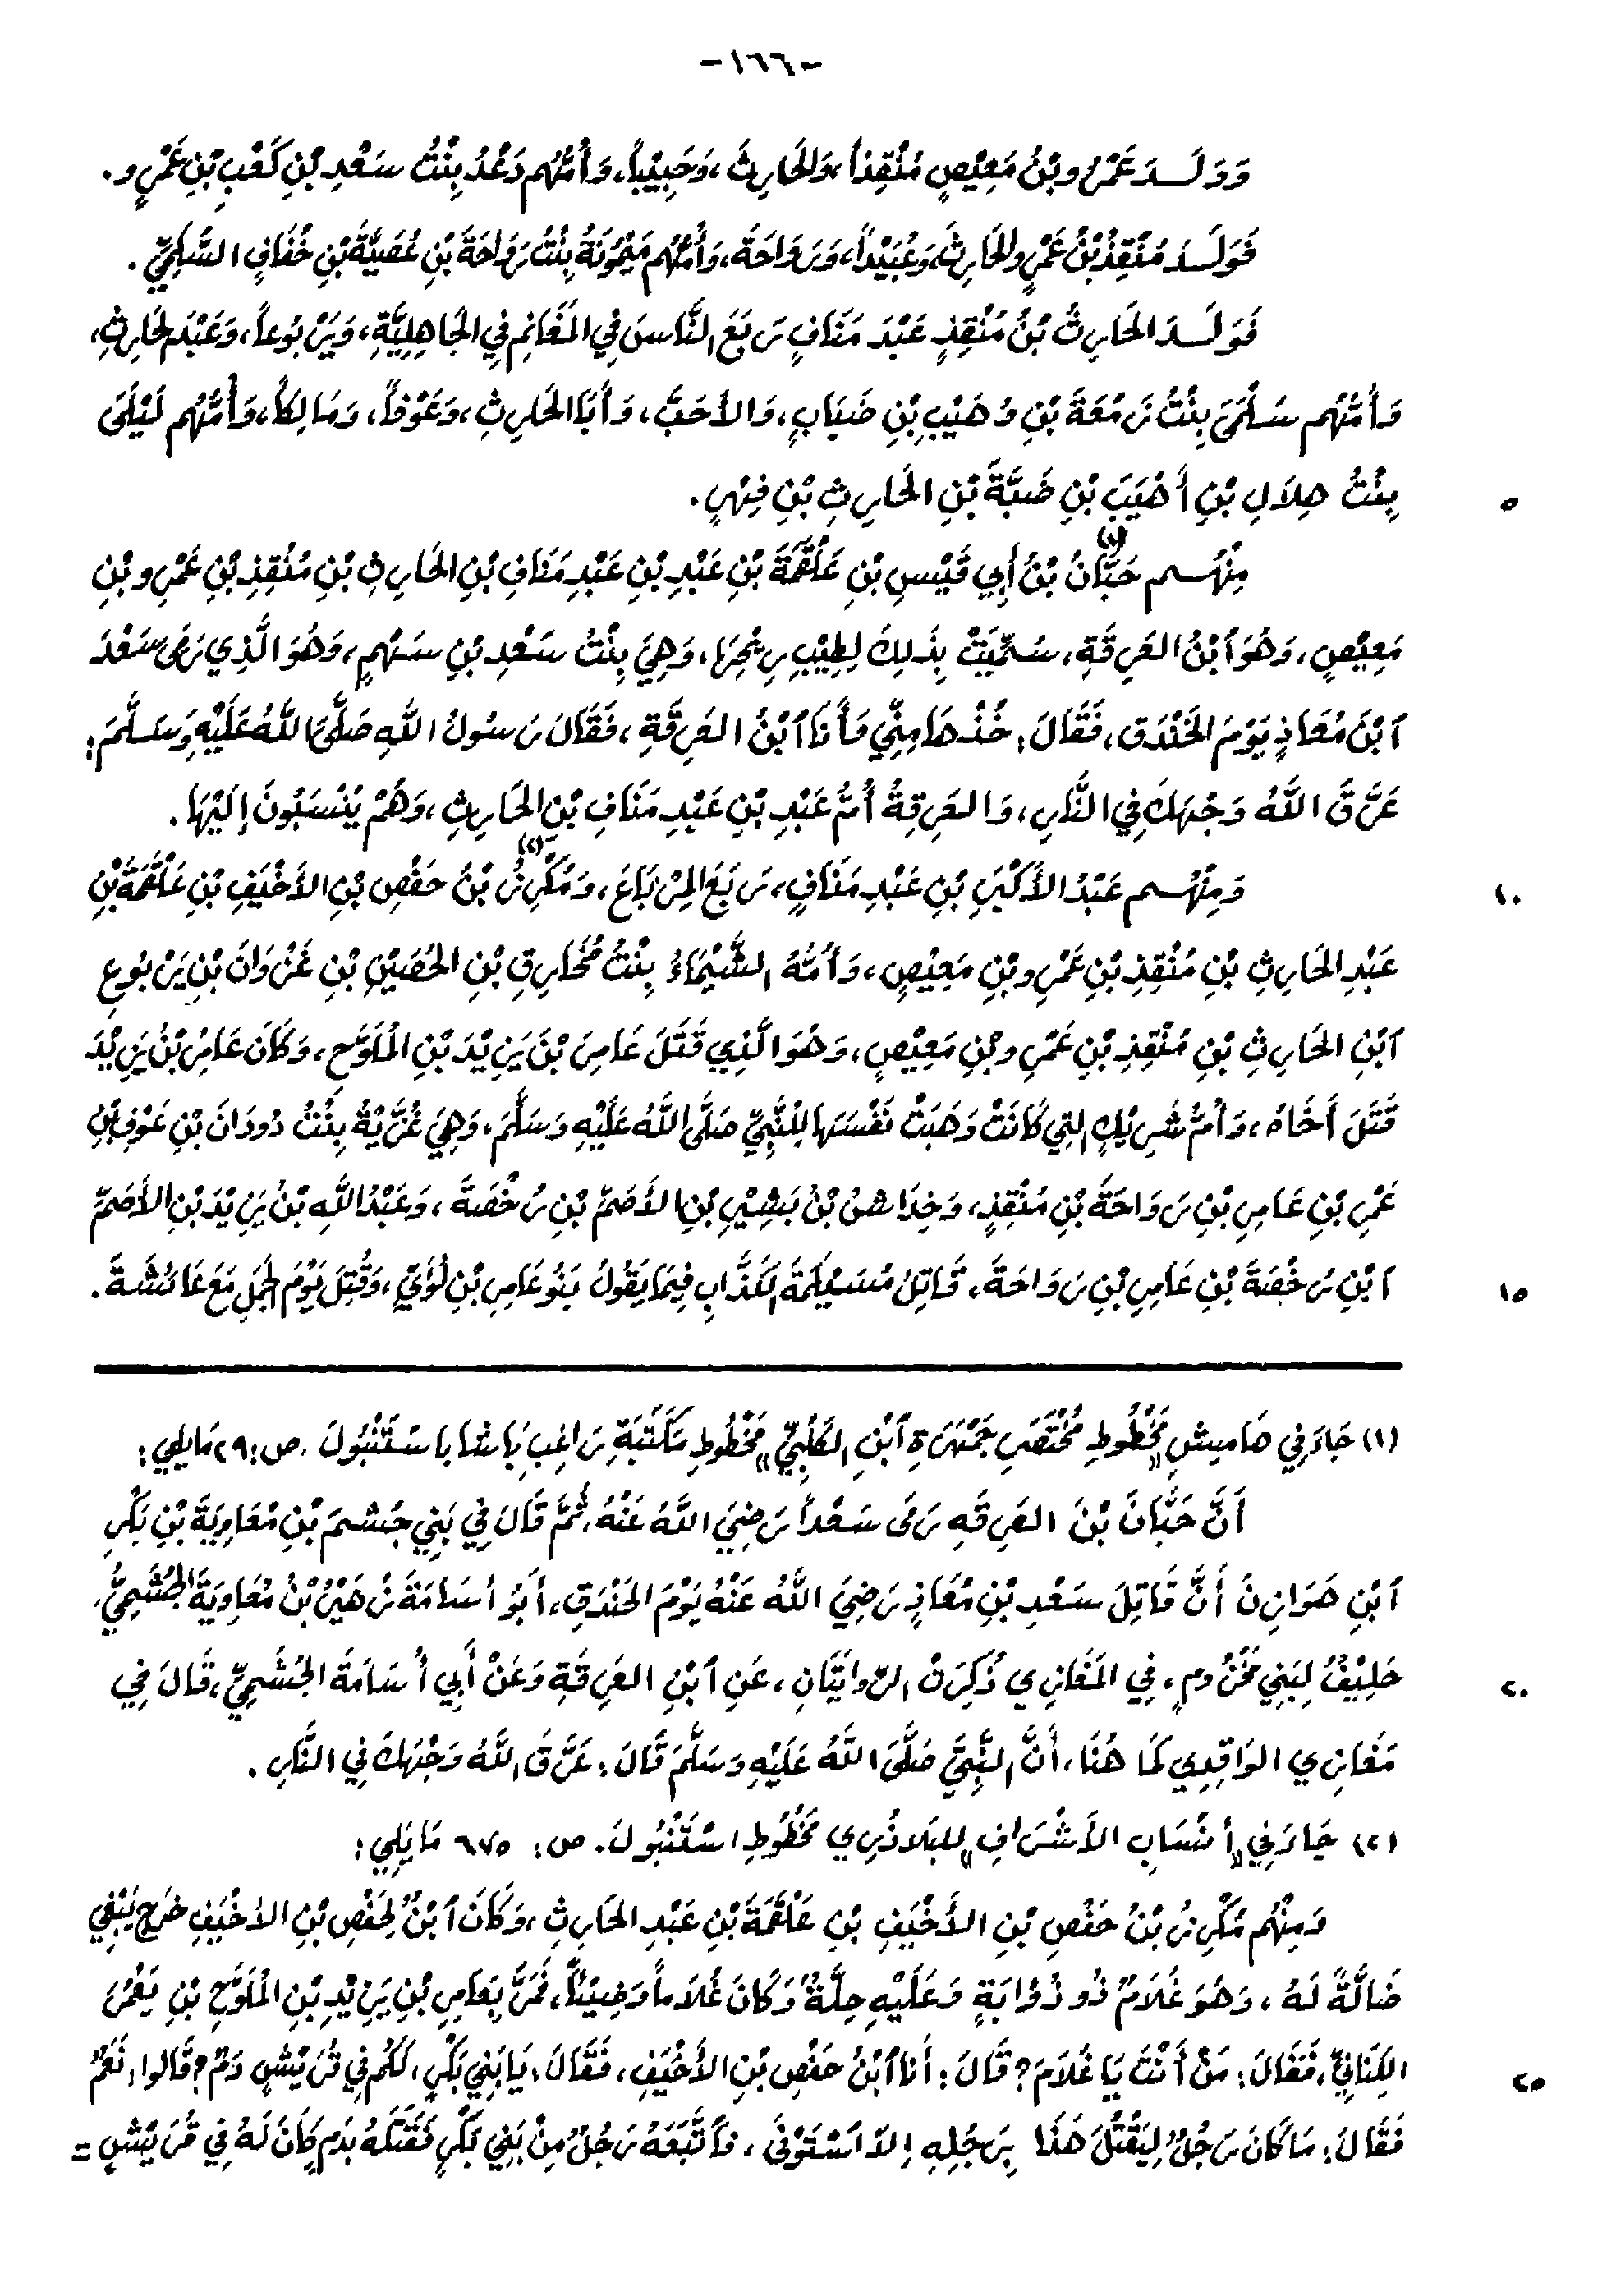 -١٦٦-
وَوَلَـدَ عَمْرُو بْنُ مَعِيْصٍ مُنْقِذاً، وَالحَارِثَ، وَحَبِيْباً، وَأُمُّهُم دَعْدُ بِنْتُ سَعْدِ بْنِ كَعْبِ بْنِ عَمْرٍو.
فَوَلَـدَ مُنْقِذُ بْنُ عَمْرٍو الحَارِثَ، وَعُبَيْداً، وَرَوَاحَةَ، وَأُمُّهُم مَيْمُونَةُ بِنْتُ رَوَاحَةَ بْنِ عُصَيَّةَ بْنِ خُفَافٍ السُّلَمِيِّ.
فَوَلَـدَ الحَارِثُ بْنُ مُنْقِذٍ عَبْدَ مَنَافٍ رَبَعَ النَّاسَ فِي المَغَانِمِ فِي الجَاهِلِيَّةِ، وَيَرْبُوعاً، وَعَبْدَ الحَارِثِ،
وَأُمُّهُم سَلْمَى بِنْتُ رَمْعَةَ بْنِ وُهَيْبِ بْنِ ضَبَابٍ، وَالأَحَبَّ، وَأَبَا الحَارِثِ، وَعَوْفاً، وَمَالِكاً، وَأُمُّهُم لَيْلَى
بِنْتُ هِلاَلِ بْنِ أُهَيَبَ بْنِ ضَبَّةَ بْنِ الحَارِثِ بْنِ فِهْرٍ.
٥
مِنْهُـم حَبَّانُ (١) بْنُ أَبِي قَيْسِ بْنِ عَلْقَمَةَ بْنِ عَبْدِ بْنِ عَبْدِ مَنَافِ بْنِ الحَارِثِ بْنِ مُنْقِذِ بْنِ عَمْرِو بْنِ
مَعِيْصٍ، وَهُوَ ٱبْنُ العَرِقَةِ، سُمِّيَتْ بِذَلِكَ لِطِيْبِ رِيْحِهَا، وَهِيَ بِنْتُ سَعْدِ بْنِ سَهْمٍ، وَهُوَ الَّذِي رَمَى سَعْدَ
ٱبْنَ مُعَاذٍ يَوْمَ الخَنْدَقِ، فَقَالَ: خُذْهَا مِنِّي فَأَنَا ٱبْنُ العَرِقَةِ، فَقَالَ رَسُولُ اللَّهِ صَلَّى اللَّهُ عَلَيْهِ وَسَلَّمَ:
عَرَّقَ اللَّهُ وَجْهَكَ فِي النَّارِ، وَالعَرِقَةُ أُمُّ عَبْدِ بْنِ عَبْدِ مَنَافِ بْنِ الحَارِثِ، وَهُمْ يُنْسَبُونَ إِلَيْهَا.
وَمِنْهُـم عَبْدُ الأَكْبَرِ بْنِ عَبْدِ مَنَافٍ، رَبَعَ المِرْبَاعَ، وَمُكْرِزُ (٢) بْنُ حَفْصِ بْنِ الأَخْيَفِ بْنِ عَلْقَمَةَ بْنِ
١٠
عَبْدِ الحَارِثِ بْنِ مُنْقِذِ بْنِ عَمْرِو بْنِ مَعِيْصٍ، وَأُمُّهُ الشَّيْمَاءُ بِنْتُ مُخَارِقِ بْنِ الحُصَيْنِ بْنِ غَزْوَانَ بْنِ يَرْبُوعِ
ٱبْنِ الحَارِثِ بْنِ مُنْقِذِ بْنِ عَمْرِو بْنِ مَعِيْصٍ، وَهُوَ الَّذِي قَتَلَ عَامِرَ بْنَ يَزِيْدَ بْنِ المُلَوَّحِ، وَكَانَ عَامِرُ بْنُ يَزِيْدَ
قَتَلَ أَخَاهُ، وَأُمُّ شَرِيْكٍ الَّتِي كَانَتْ وَهَبَتْ نَفْسَهَا لِلنَّبِيِّ صَلَّى اللَّهُ عَلَيْهِ وَسَلَّمَ، وَهِيَ غُزَيَّةُ بِنْتُ دُودَانَ بْنِ عَوْفِ بْنِ
عَمْرِ بْنِ عَامِرِ بْنِ رَوَاحَةَ بْنِ مُنْقِذٍ، وَخِدَاشُ بْنُ بَشِيْرِ بْنِ الأَصَمِّ بْنِ رُحْضَةَ، وَعَبْدُ اللَّهِ بْنُ يَزِيْدَ بْنِ الأَصَمِّ
ٱبْنِ رُحْضَةَ بْنِ عَامِرِ بْنِ رَوَاحَةَ، قَاتِلُ مُسَيْلِمَةَ الكَذَّابِ فِيمَا يَقُولُ بَنُو عَامِرِ بْنِ لُؤَيٍّ، وَقُتِلَ يَوْمَ الجَمَلِ مَعَ عَائِشَةَ.
١٥
(١) جَاءَ فِي هَامِشِ «مَخْطُوطِ مُخْتَصَرِ جَمْهَرَةِ ٱبْنِ الكَلْبِيِّ» مَخْطُوطِ مَكْتَبَةِ رَاغِبِ بَاشَا بِاسْتَنْبُولَ. ص: ٢٩ مَايلي:
أَنَّ حَبَّانَ بْنَ العَرِقَهِ رَمَى سَعْداً رَضِيَ اللَّهُ عَنْهُ، ثُمَّ قَالَ فِي بَنِي جُشَمَ بْنِ مُعَاوِيَةَ بْنِ بَكْرِ
ٱبْنِ هَوَازِنَ أَنَّ قَاتِلَ سَعْدِ بْنِ مُعَاذٍ رَضِيَ اللَّهُ عَنْهُ يَوْمَ الخَنْدَقِ، أَبُو أُسَامَةَ زُهَيْرُ بْنُ مُعَاوِيَةَ الجُشَمِيُّ،
حَلِيْفٌ لِبَنِي مَخْزُومٍ، فِي المَغَازِي ذُكِرَتْ الرِّوَايَتَانِ، عَنِ ٱبْنِ العَرِقَةِ وَعَنْ أَبِي أُسَامَةَ الجُشَمِيِّ، قَالَ فِي
٢٠
مَغَازِي الوَاقِدِي كَمَا هُنَا، أَنَّ النَّبِيَّ صَلَّى اللَّهُ عَلَيْهِ وَسَلَّمَ قَالَ: عَرَّقَ اللَّهُ وَجْهَكَ فِي النَّارِ.
(٢) جَاءَ فِي «أَنْسَابِ الأَشْرَافِ» للبَلاذُرِي مَخْطُوطِ اسْتَنْبُولَ. ص: ٦٧٥ مَا يَلِي:
وَمِنْهُم مُكْرِزُ بْنُ حَفْصِ بْنِ الأَخْيَفِ بْنِ عَلْقَمَةَ بْنِ عَبْدِ الحَارِثِ، وَكَانَ ٱبْنٌ لِحَفْصِ بْنِ الأَخْيَفِ خَرَجَ يَبْغِي
ضَالَّةً لَهُ، وَهُوَ غُلاَمٌ ذُو ذُؤَابَةٍ وَعَلَيْهِ حِلَّةٌ وَكَانَ غُلاَماً وَضِيْئاً، فَمَرَّ بِعَامِرِ بْنِ يَزِيْدِ بْنِ المُلَوَّحِ بْنِ يَعْمُرَ
الكِنَانِيِّ، فَقَالَ: مَنْ أَنْتَ يَا غُلاَمَ؟ قَالَ: أَنَا ٱبْنُ حَفْصِ بْنِ الأَخْيَفِ، فَقَالَ: يَا بَنِي بَكْرٍ، لَكُم فِي قُرَيْشٍ دَمٌ؟ قَالوا: نَعَمْ
٢٥
فَقَالَ: مَا كَانَ رَجُلٌ لِيَقْتُلَ هَذَا بِرَجُلِهِ إِلاَّ ٱسْتَوْفَى، فَاتَّبَعَهُ رَجُلٌ مِنْ بَنِي بَكْرٍ فَقَتَلَهُ بِدَمٍ كَانَ لَهُ فِي قُرَيْشٍ =